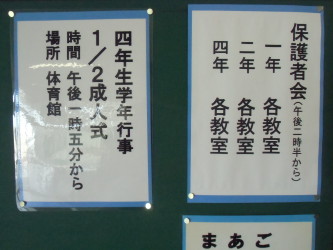 保護者会(午後二時半から)
一年 各教室
二年 各教室
四年 各教室
四年生学年行事
1/2成人式
時間 午後一時五分から
場所 体育館
まあご